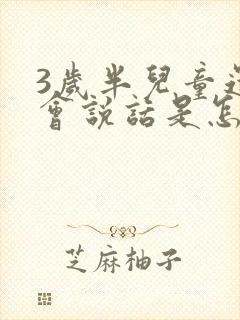 3歲半兒童還
會說話是怎
芝麻柚子